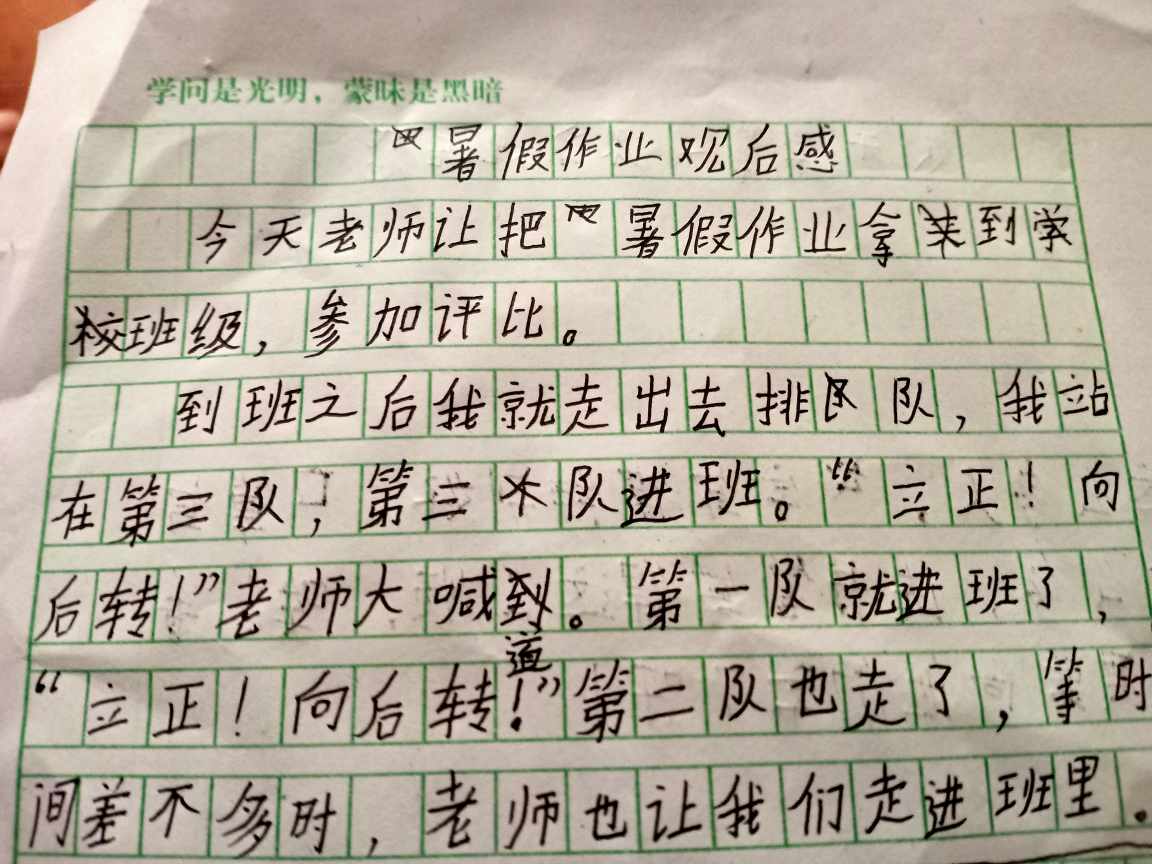 学问是光明，蒙昧是黑暗
暑假作业观后感
今天老师让把暑假作业拿来到学
校班级，参加评比。
到班之后我就走出去排队，我站
在第三队，第三队进班。“立正！向
后转！”老师大喊到。第一队就进班了，
道
“立正！向后转！”第二队也走了，等时
间差不多时，老师也让我们走进班里。